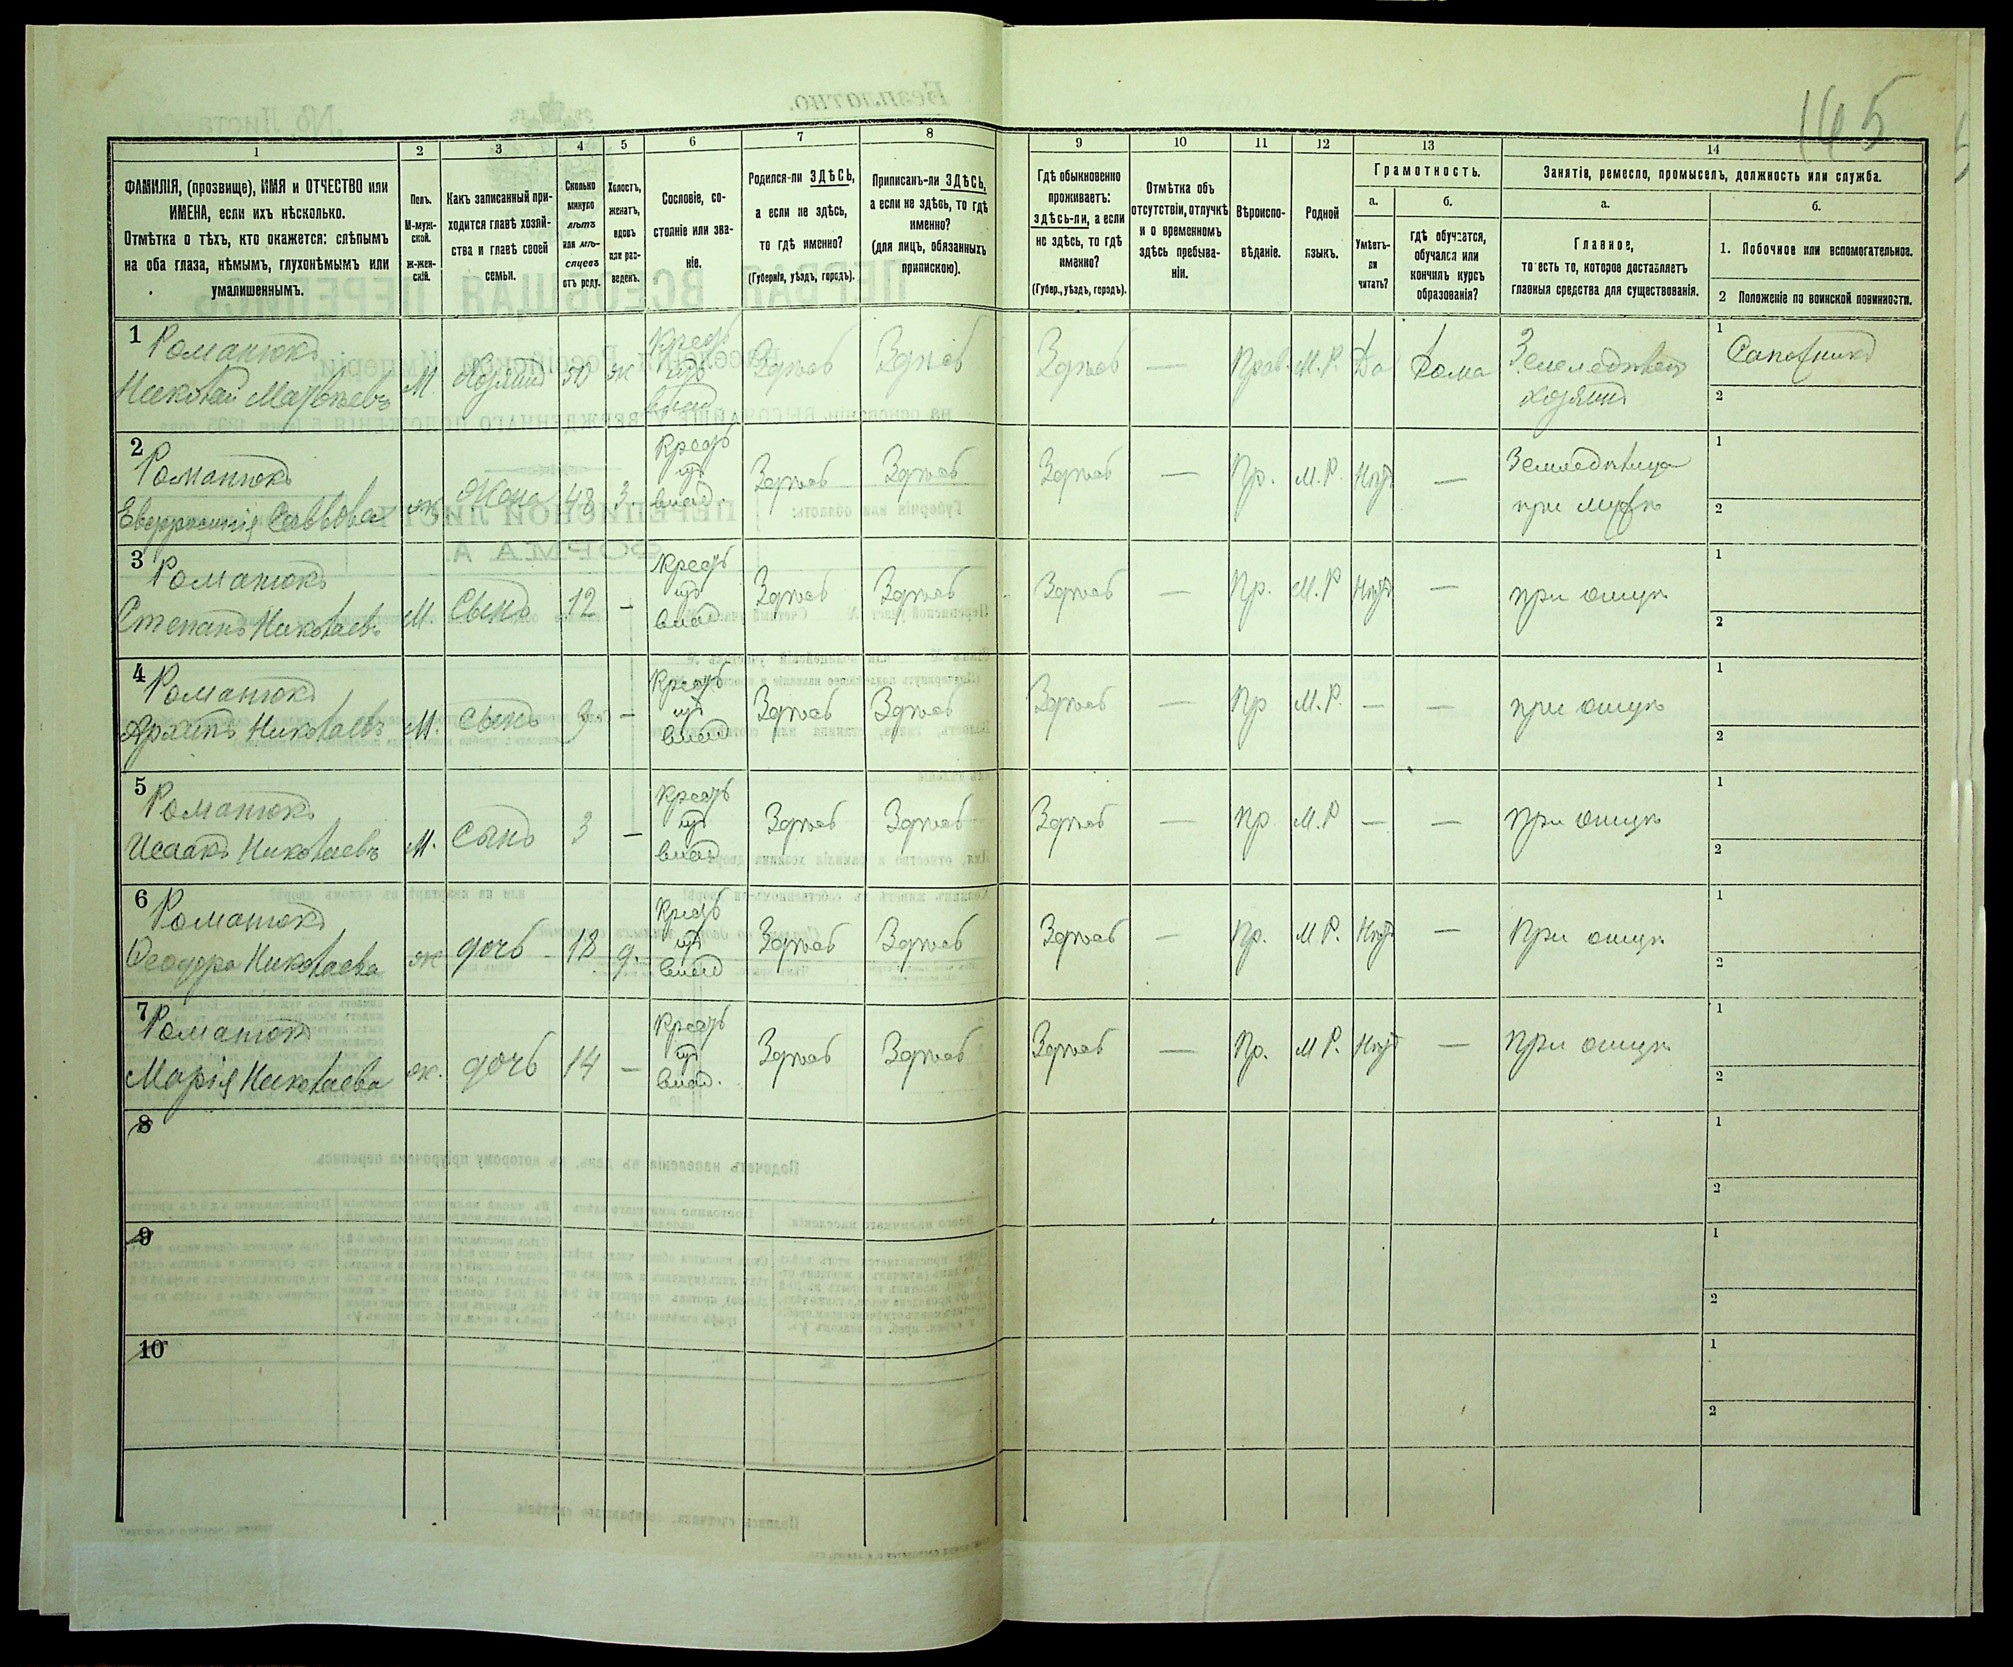 165
1
2
3
4
5
6
7
8
9
10
11
12
13
14
ФАМИЛІЯ, (прозвище), ИМЯ и ОТЧЕСТВО или
ИМЕНА, если ихъ нѣсколько.
Отмѣтка о тѣхъ, кто окажется: слѣпымъ
на оба глаза, нѣмымъ, глухонѣмымъ или
умалишеннымъ.
Полъ.
М-муж-
ской.
Ж-жен-
скій.
Какъ записанный при-
ходится главѣ хозяй-
ства и главѣ своей
семьи.
Сколько
минуло
лѣтъ
или мѣ-
сяцевъ
отъ роду.
Холостъ,
женатъ,
вдовъ
или раз-
веденъ.
Сословіе, со-
стояніе или зва-
ніе.
Родился-ли ЗДѢСЬ,
а если не здѣсь,
то гдѣ именно?
(Губернія, уѣздъ, городъ).
Приписанъ-ли ЗДѢСЬ,
а если не здѣсь, то гдѣ
именно?
(для лицъ, обязанныхъ
припискою).
Гдѣ обыкновенно
проживаетъ:
здѣсь-ли, а если
не здѣсь, то гдѣ
именно?
(Губер., уѣздъ, городъ).
Отмѣтка объ
отсутствіи, отлучкѣ
и о временномъ
здѣсь пребыва-
ніи.
Вѣроиспо-
вѣданіе.
Родной
языкъ.
Грамотность.
а.
Умѣетъ-
ли
читать?
б.
гдѣ обучается,
обучался или
кончилъ курсъ
образованія?
Занятія, ремесло, промыселъ, должность или служба.
а.
Главное,
то есть то, которое доставляетъ
главныя средства для существованія.
б.
1. Побочное или вспомогательное.
2 Положеніе по воинской повинности.
1
Романюкъ
Николай Матвѣевъ М. Хозяинъ 50 ж
Крест
изъ
влад
Здѣсь Здѣсь Здѣсь — Прав. М.Р. Да Дома
Земледѣлецъ
хозяинъ
1 Сапожникъ
2
2
Романюкъ
Евфросинія Саввова ж Жена 48 З.
Крест
изъ
влад.
Здѣсь Здѣсь Здѣсь — Пр. М.Р. Нѣтъ —
Земледѣлица
при мужѣ
1
2
3
Романюкъ
Степанъ Николаевъ М. Сынъ 12 —
Крест
изъ
влад
Здѣсь Здѣсь Здѣсь — Пр. М.Р Нѣтъ — при отцѣ
1
2
4
Романюкъ
Архипъ Николаевъ М. сынъ 9 —
Крест
изъ
влад
Здѣсь Здѣсь Здѣсь — Пр М.Р. — — при отцѣ
1
2
5
Романюкъ
Исаакъ Николаевъ М. сынъ 3 —
Крест
изъ
влад
Здѣсь Здѣсь Здѣсь — Пр М.Р — — при отцѣ
1
2
6
Романюкъ
Ѳеодора Николаева ж дочь 18 д.
Крест
изъ
влад
Здѣсь Здѣсь Здѣсь — Пр. М Р. Нѣтъ — При отцѣ
1
2
7
Романюкъ
Марія Николаева ж. дочь 14 —
Крест
изъ
влад.
Здѣсь Здѣсь Здѣсь — Пр. М Р. Нѣтъ — при отцѣ
1
2
8
1
2
9
1
2
10
1
2